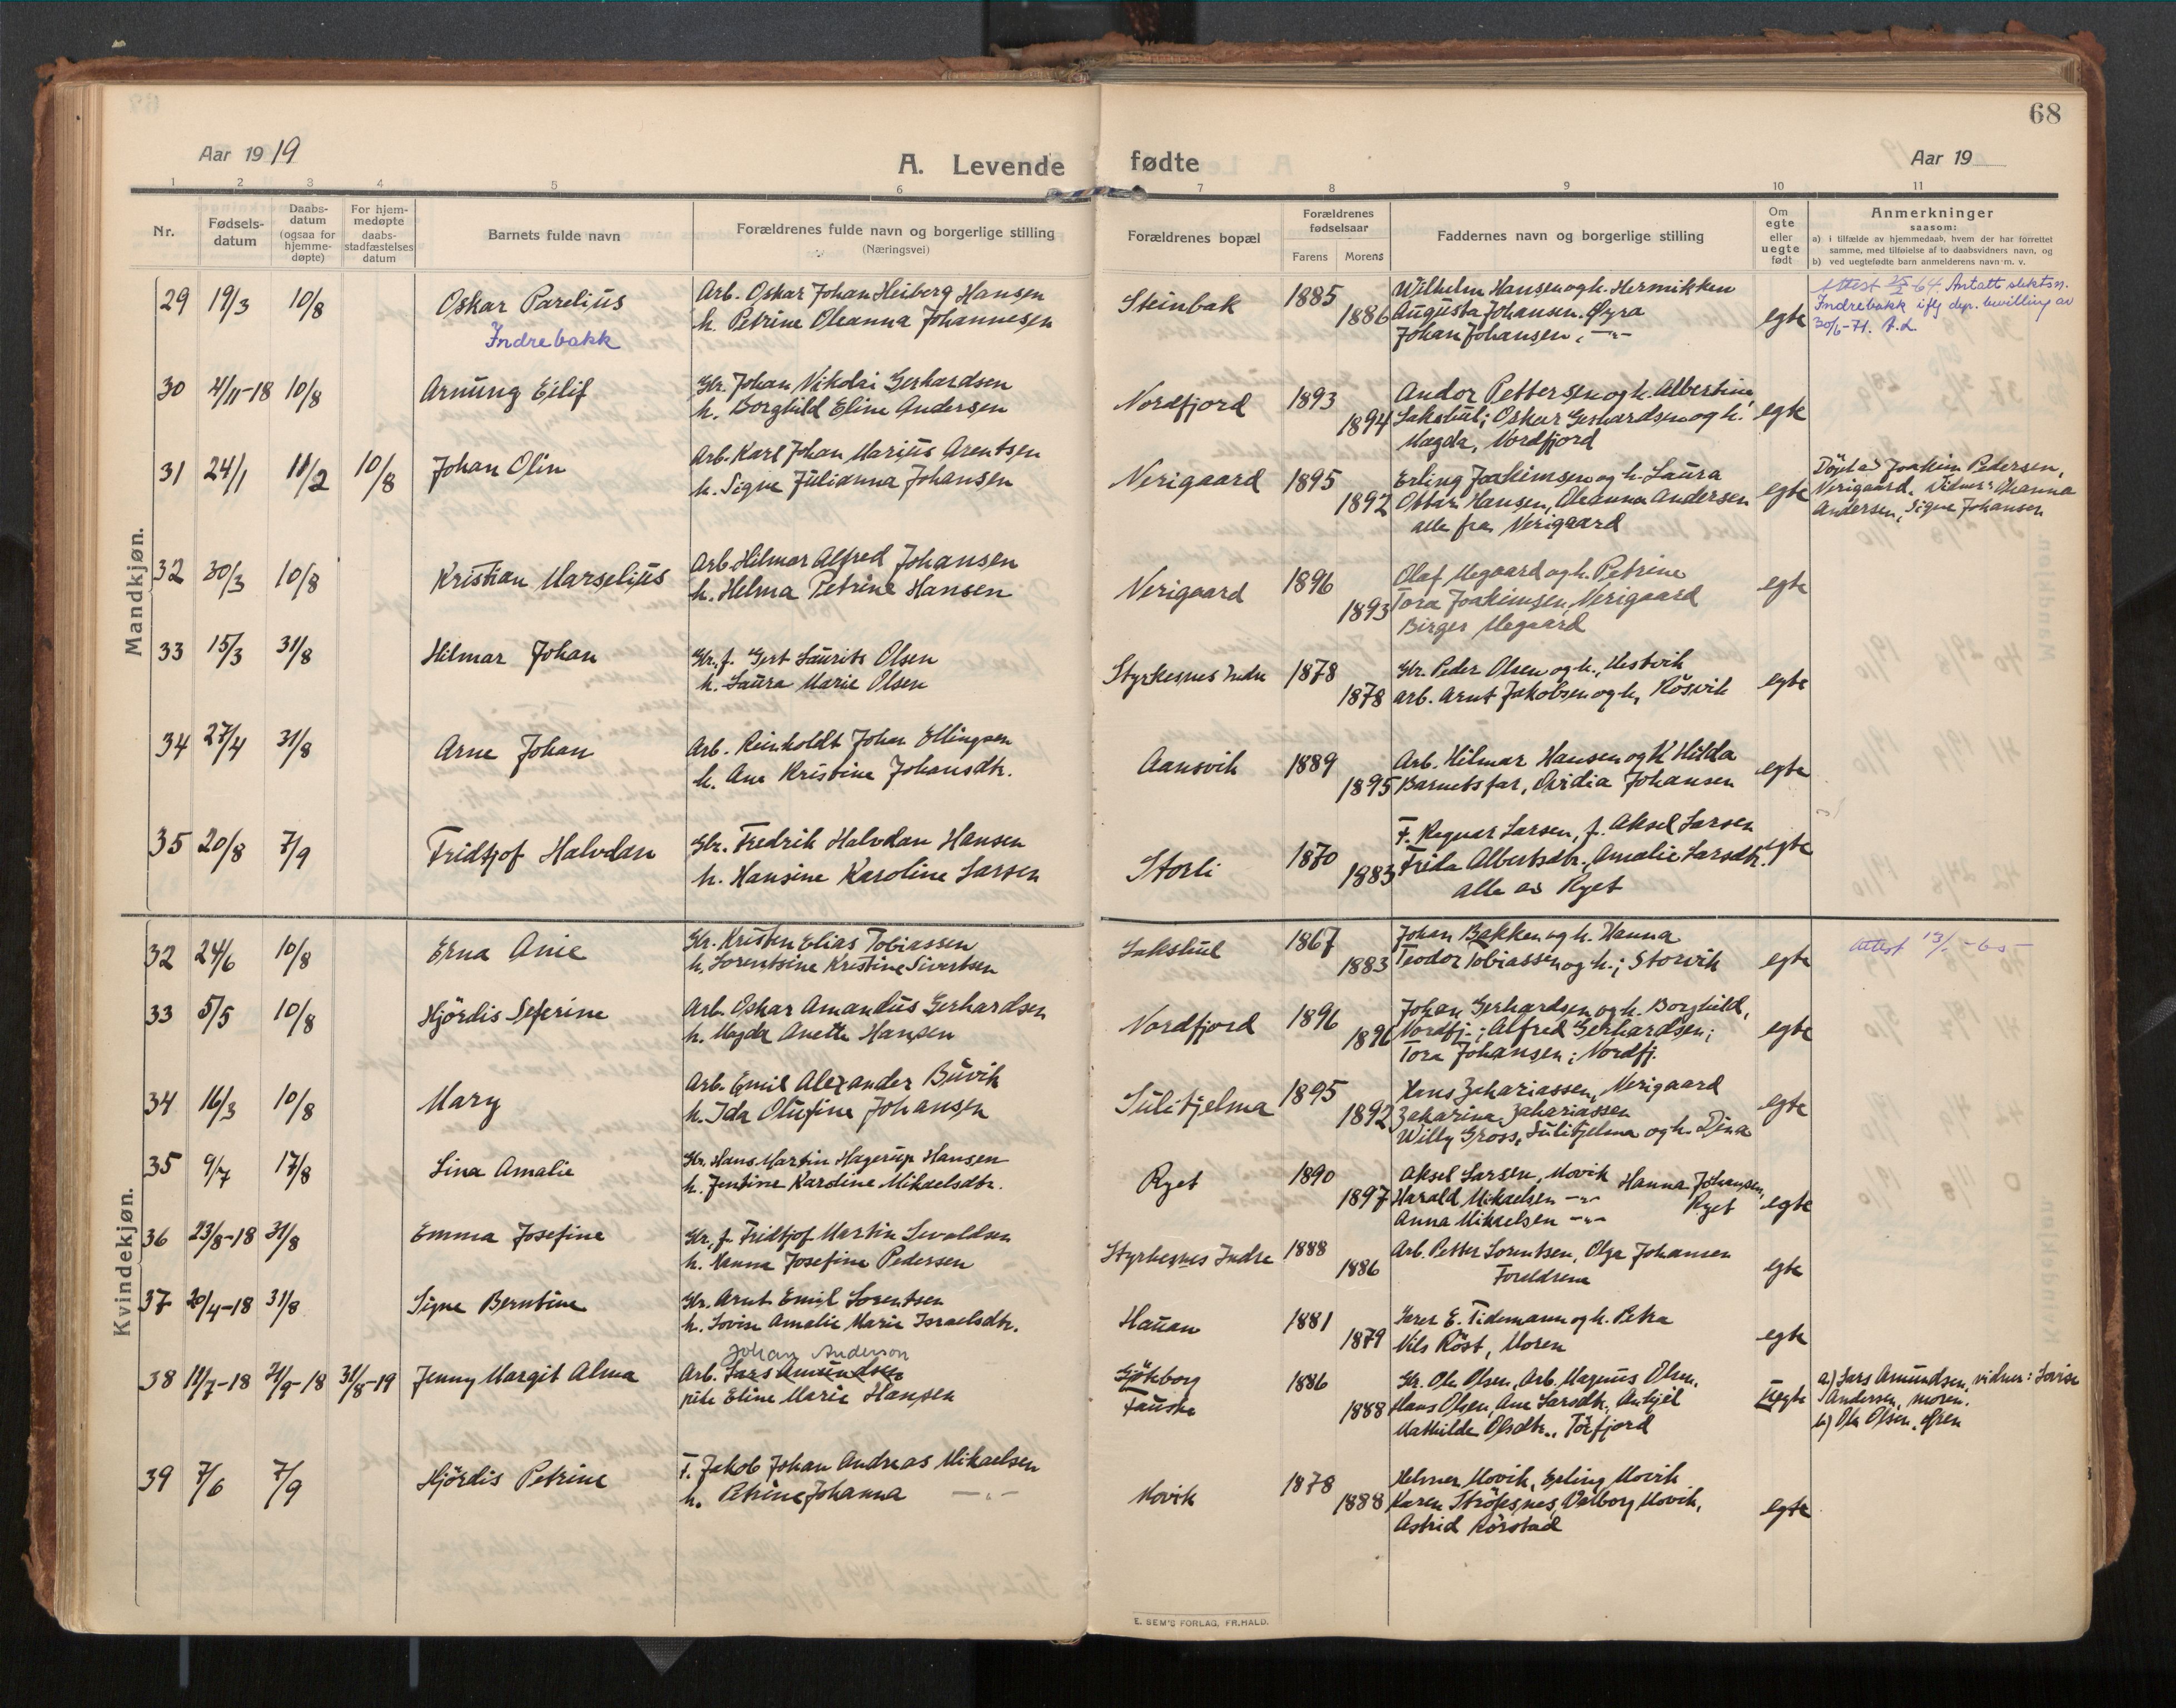 68
Aar 1919
A. Levende fødte
Aar 19
1 2 3 4 5 6 7 8 9 10 11
Nr.
Fødsels-
datum
Daabs-
datum
(ogsaa for
hjemme-
døpte)
For hjem-
medøpte
daabs-
stadfæstelses
datum
Barnets fulde navn
Forældrenes fulde navn og borgerlige stilling
(Næringsvei)
Forældrenes bopæl
Forældrenes
fødselsaar
Farens Morens
Faddernes navn og borgerlige stilling
Om
egte
eller
uegte
født
Anmerkninger
saasom:
a) i tilfælde av hjemmedaab, hvem der har forrettet
samme, med tilføielse af to daabsvidners navn, og
b) ved uegtefødte barn anmelderens navn m. v.
Mandkjøn.
29 19/3 10/8 Oskar Parelius
Indrebakk
Arb. Oskar Johan Heiberg Hansen
h. Petrine Oleanna Johannesen
Steinbak 1885 1886
Wilhelm Hansen og h. Hermikken
Augusta Johansen. Øyra
Johan Johansen, —"—
egte
Attest 25/2 64. Antatt slektsn.
Indrebakk iflg dep. bevilling av
30/6-71.
30 4/11-18 10/8 Arnung Eilif
Gbr. Johan Nikolai Gerhardsen
h. Borghild Eline Andersen
Nordfjord 1893 1894
Andor Pettersen og h. Albertine,
Lakshul; Oskar Gerhardsen og h.
Magda, Nordfjord
egte
31 24/1 11/2 10/8 Johan Olin
Arb. Karl Johan Marius Arentsen
h. Signe Julianna Johansen
Nerigaard 1895 1892
Erling Joakimsen og h. Laura
Ottar Hansen, Oleanna Andersen
alle fra Nerigaard
egte
Döpt av Joakim Pedersen,
Nerigaard. Vidner: Oleanna
Andersen, Signe Johansen
32 30/3 10/8 Kristian Marselius
Arb. Hilmar Alfred Johansen
h. Helma Petrine Hansen
Nerigaard 1896 1893
Olaf Megaard og h. Petrine
Tora Joakimsen, Nerigaard
Birger Megaard
egte
33 15/3 31/8 Hilmar Johan
Gbr. f. Gert Laurits Olsen
h. Laura Marie Olsen
Styrkesnes Indre 1878 1878
Gbr. Peder Olsen og h., Hestvik
arb. Arnt Jakobsen og h, Rösvik
egte
34 27/4 31/8 Arne Johan
Arb. Reinholdt Johan Ellingsen
h. Ane Kristine Johansdtr.
Aansvik 1889 1895
Arb. Hilmar Hansen og K Hilda
Barnets far, Ovidia Johansen
egte
35 20/8 7/9 Fridtjof Halvdan
Gbr. Fredrik Halvdan Hansen
h. Hansine Karoline Larsen
Storli 1870 1883
F. Regnar Larsen, f. Aksel Larsen
Frida Albertsdtr., Amalie Larsdtr.
alle av Ryet
egte
Kvindekjøn.
32 24/6 10/8 Erna Anie
Gbr. Kristen Elias Tobiassen
h. Lorentsine Kristine Sivertsen
Lakshul 1867 1883
Johan Bakken og h. Hanna
Teodor Tobiassen og h.; Storvik
egte
33 5/5 10/8 Hjördis Seferine
Arb. Oskar Amandus Gerhardsen
h. Magda Anette Hansen
Nordfjord 1896 1896
Johan Gerhardsen og h. Borghild,
Nordfj.; Alfred Gerhardsen;
Tora Johansen; Nordfj.
egte
34 16/3 10/8 Mary
Arb. Emil Alexander Buvik
h. Ida Olufine Johansen
Sulitjelma 1895 1892
Hans Zahariassen, Nerigaard
Zakarina Zahariassen
Willy Gross, Sulitjelma og h. Dina
egte
35 9/7 17/8 Lina Amalie
Gbr. Hans Martin Hagerup Hansen
h. Jentine Karoline Mikaelsdtr.
Ryet 1890 1897
Aksel Larsen, Movik Hanna Johansen,
Harald Mikaelsen —"— Ryet
Anna Mikaelsen —"—
egte
36 23/8-18 31/8 Emma Josefine
Gbr, f. Fridtjof Martin Levoldsen
h. Hanna Josefine Pedersen
Styrkesnes Indre 1888 1886
Arb. Petter Lorentsen, Olga Johansen
Foreldrene
egte
37 20/4-18 31/8 Signe Berntine
Gbr. Arnt Emil Lorentsen
h. Lovise Amalie Marie Israelsdtr.
Hauan 1881 1879
Lærer E. Tidemann og h. Petra
Nils Röst, Moren
egte
38 11/7-18 21/9-18 31/8-19 Jenny Margit Alma
Johan Anderson
Arb. Lars Amundsen
pike Eline Marie Hansen
Gjökborg
Fauske
1886 1888
Gbr. Ole Olsen, Arb. Magnus Olsen,
Hans Olsen, Ane Larsdtr.,
Mathilde Olsdtr., Torfjord
uegte
a.) Lars Amundsen, vidner: Lovise
Andersen, moren.
b) Ole Olsen,
39 7/6 7/9 Hjördis Petrine
F. Jakob Johan Andreas Mikaelsen
h. Petrine Johanna —"—
Movik 1878 1888
Helmer Movik, Erling Movik
Karen Ströksnes, Valborg Movik,
Astrid Rørstad
egte
E. SEM'S FORLAG, FR.HALD.